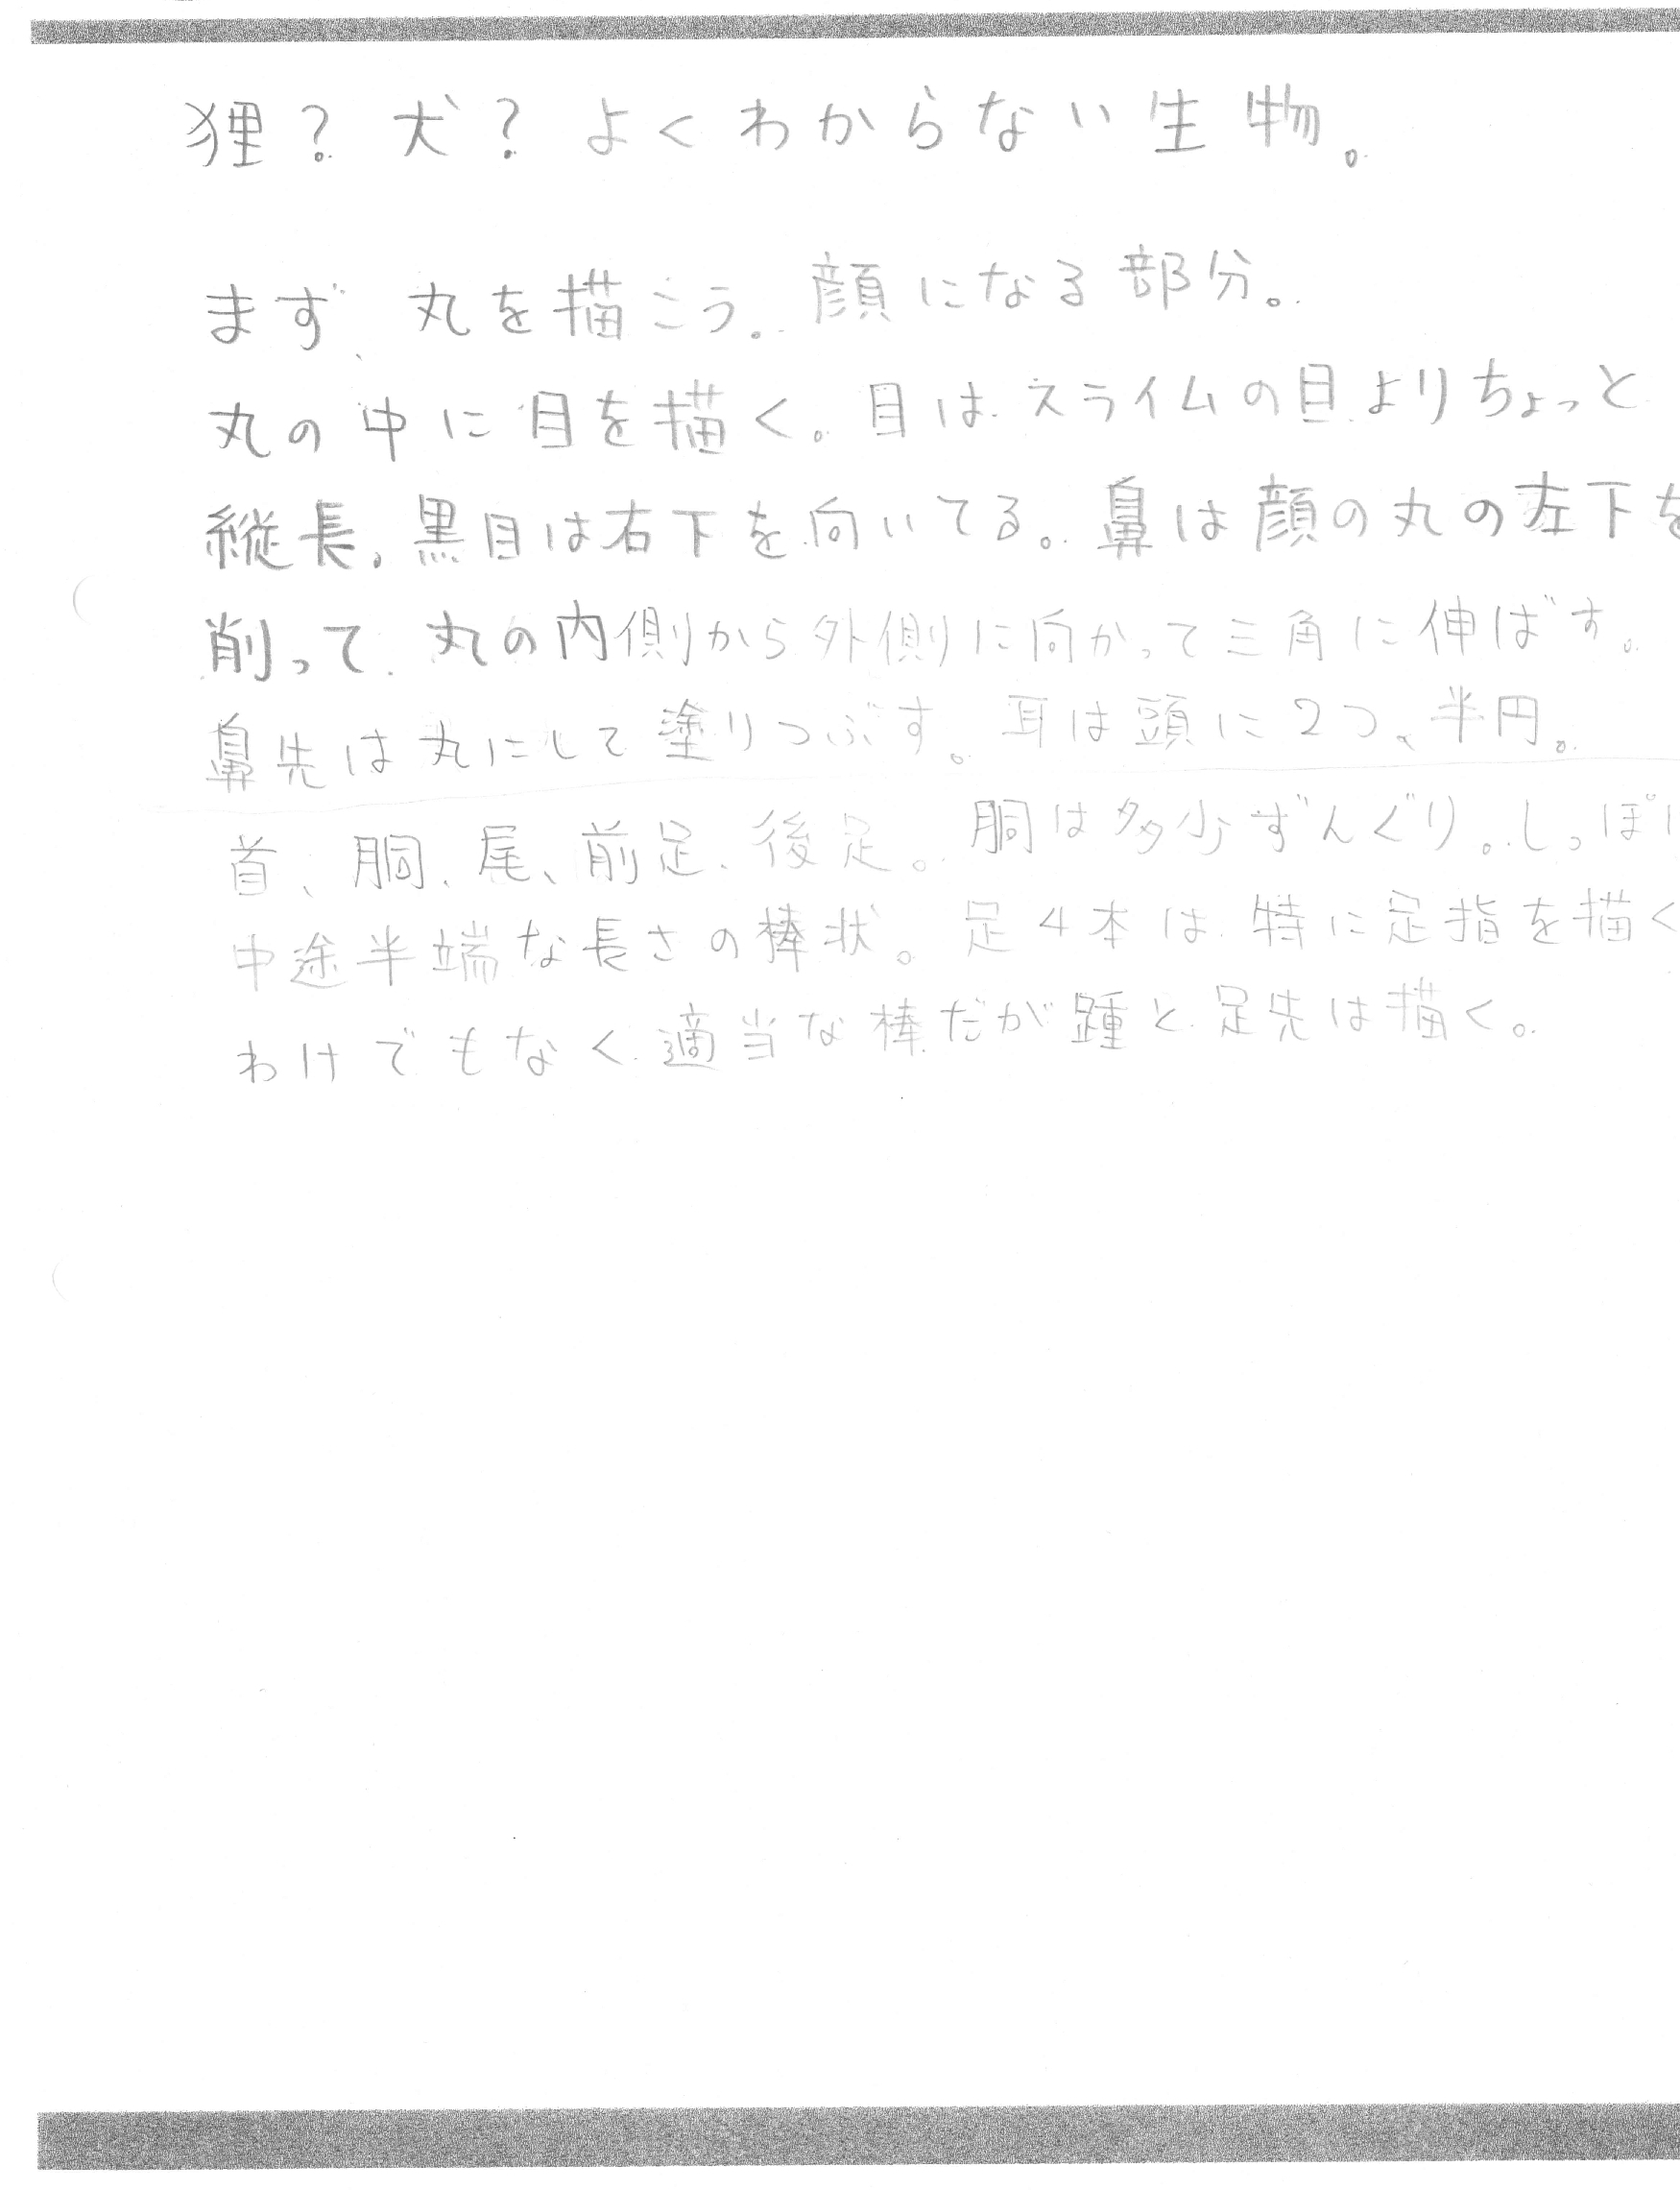 狸？犬？よくわからない生物。
まず、丸を描こう。顔になる部分。
丸の中に目を描く。目はスライムの目よりちょっと
縦長。黒目は右下を向いてる。鼻は顔の丸の左下を
削って、丸の内側から外側に向かって三角に伸ばす。
鼻先は丸にして塗りつぶす。耳は頭に2つ、半円。
首、胴、尾、前足、後足。胴は多少ずんぐり。しっぽは
中途半端な長さの棒状。足4本は、特に足指を描く
わけでもなく適当な棒だが踵と足先は描く。